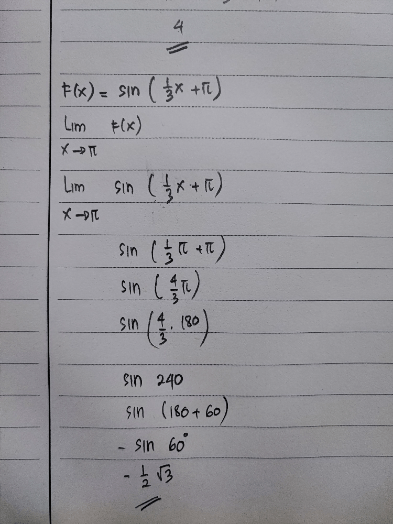 4
F(x) = sin (⅓x + π)
Lim F(x)
x → π
Lim sin (⅓x + π)
x → π
sin (⅓π + π)
sin (4/3 π)
sin (4/3 . 180)
sin 240
sin (180 + 60)
- sin 60°
- ½ √3